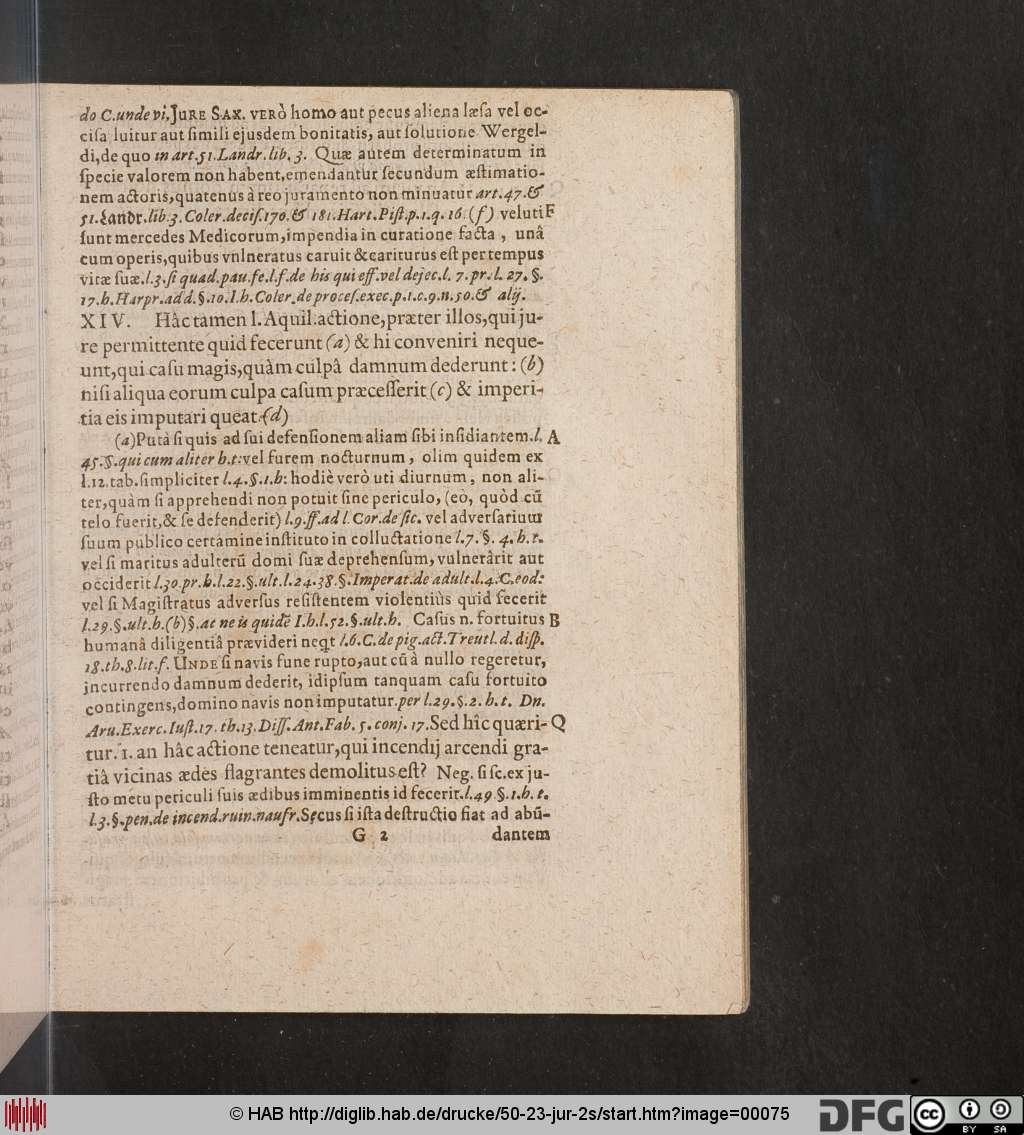 do C. unde vi, JURE SAX. VERÒ homo aut pecus aliena læsa vel oc-
cisa luitur aut simili ejusdem bonitatis, aut solutione Wergel-
di, de quo in art. 51. Landr. lib. 3. Quæ autem determinatum in
specie valorem non habent, emendantur secundum æstimatio-
nem actoris, quatenus à reo juramento non minuatur art. 47. &
51. Landr. lib. 3. Coler. decis. 170. & 181. Hart. Pist. p. 1. q. 16. (f) veluti F
sunt mercedes Medicorum, impendia in curatione facta, unâ
cum operis, quibus vnlneratus caruit & cariturus est per tempus
vitæ suæ. l. 3. si quad. pau. fe. l. f. de his qui eff. vel dejec. l. 7. pr. l. 27. §.
17. h. Harpr. add. §. 10. I. h. Coler. de proces. exec. p. 1. c. 9. n. 50. & alij.
XIV. Hâc tamen l. Aquil. actione, præter illos, qui ju-
re permittente quid fecerunt (a) & hi conveniri neque-
unt, qui casu magis, quàm culpâ damnum dederunt: (b)
nisi aliqua eorum culpa casum præcesserit (c) & imperi-
tia eis imputari queat. (d)
(a) Putà si quis ad sui defensionem aliam sibi insidiantem. l. A
45. §. qui cum aliter h. t: vel furem nocturnum, olim quidem ex
l. 12. tab. simpliciter l. 4. §. 1. h: hodiè verò uti diurnum, non ali-
ter, quàm si apprehendi non potuit sine periculo, (eò, quòd cū
telo fuerit, & se defenderit) l. 9. ff. ad l. Cor. de sic. vel adversarium
suum publico certamine instituto in colluctatione l. 7. §. 4. h. t.
vel si maritus adulterū domi suæ deprehensum, vulnerârit aut
occiderit l. 30. pr. h. l. 22. §. ult. l. 24. 38. §. Imperat. de adult. l. 4. C. eod:
vel si Magistratus adversus resistentem violentiùs quid fecerit
l. 29. §. ult. h. (b) §. ac ne is quidē I. h. l. 52. §. ult. h. Casus n. fortuitus B
humanâ diligentiâ prævideri neqt l. 6. C. de pig. act. Treutl. d. disp.
18. th. 8. lit. f. UNDE si navis fune rupto, aut cū à nullo regeretur,
incurrendo damnum dederit, idipsum tanquam casu fortuito
contingens, domino navis non imputatur. per l. 29. §. 2. h. t. Dn.
Aru. Exerc. Iust. 17. th. 13. Diss. Ant. Fab. 5. conj. 17. Sed hîc quæri- Q
tur. 1. an hâc actione teneatur, qui incendij arcendi gra-
tiâ vicinas ædes flagrantes demolitus est? Neg. si sc. ex ju-
sto metu periculi suis ædibus imminentis id fecerit. l. 49 §. 1. h. t.
l. 3. §. pen. de incend. ruin. naufr. Secus si ista destructio fiat ad abū-
G 2 dantem
© HAB http://diglib.hab.de/drucke/50-23-jur-2s/start.htm?image=00075
DFG
cc BY SA